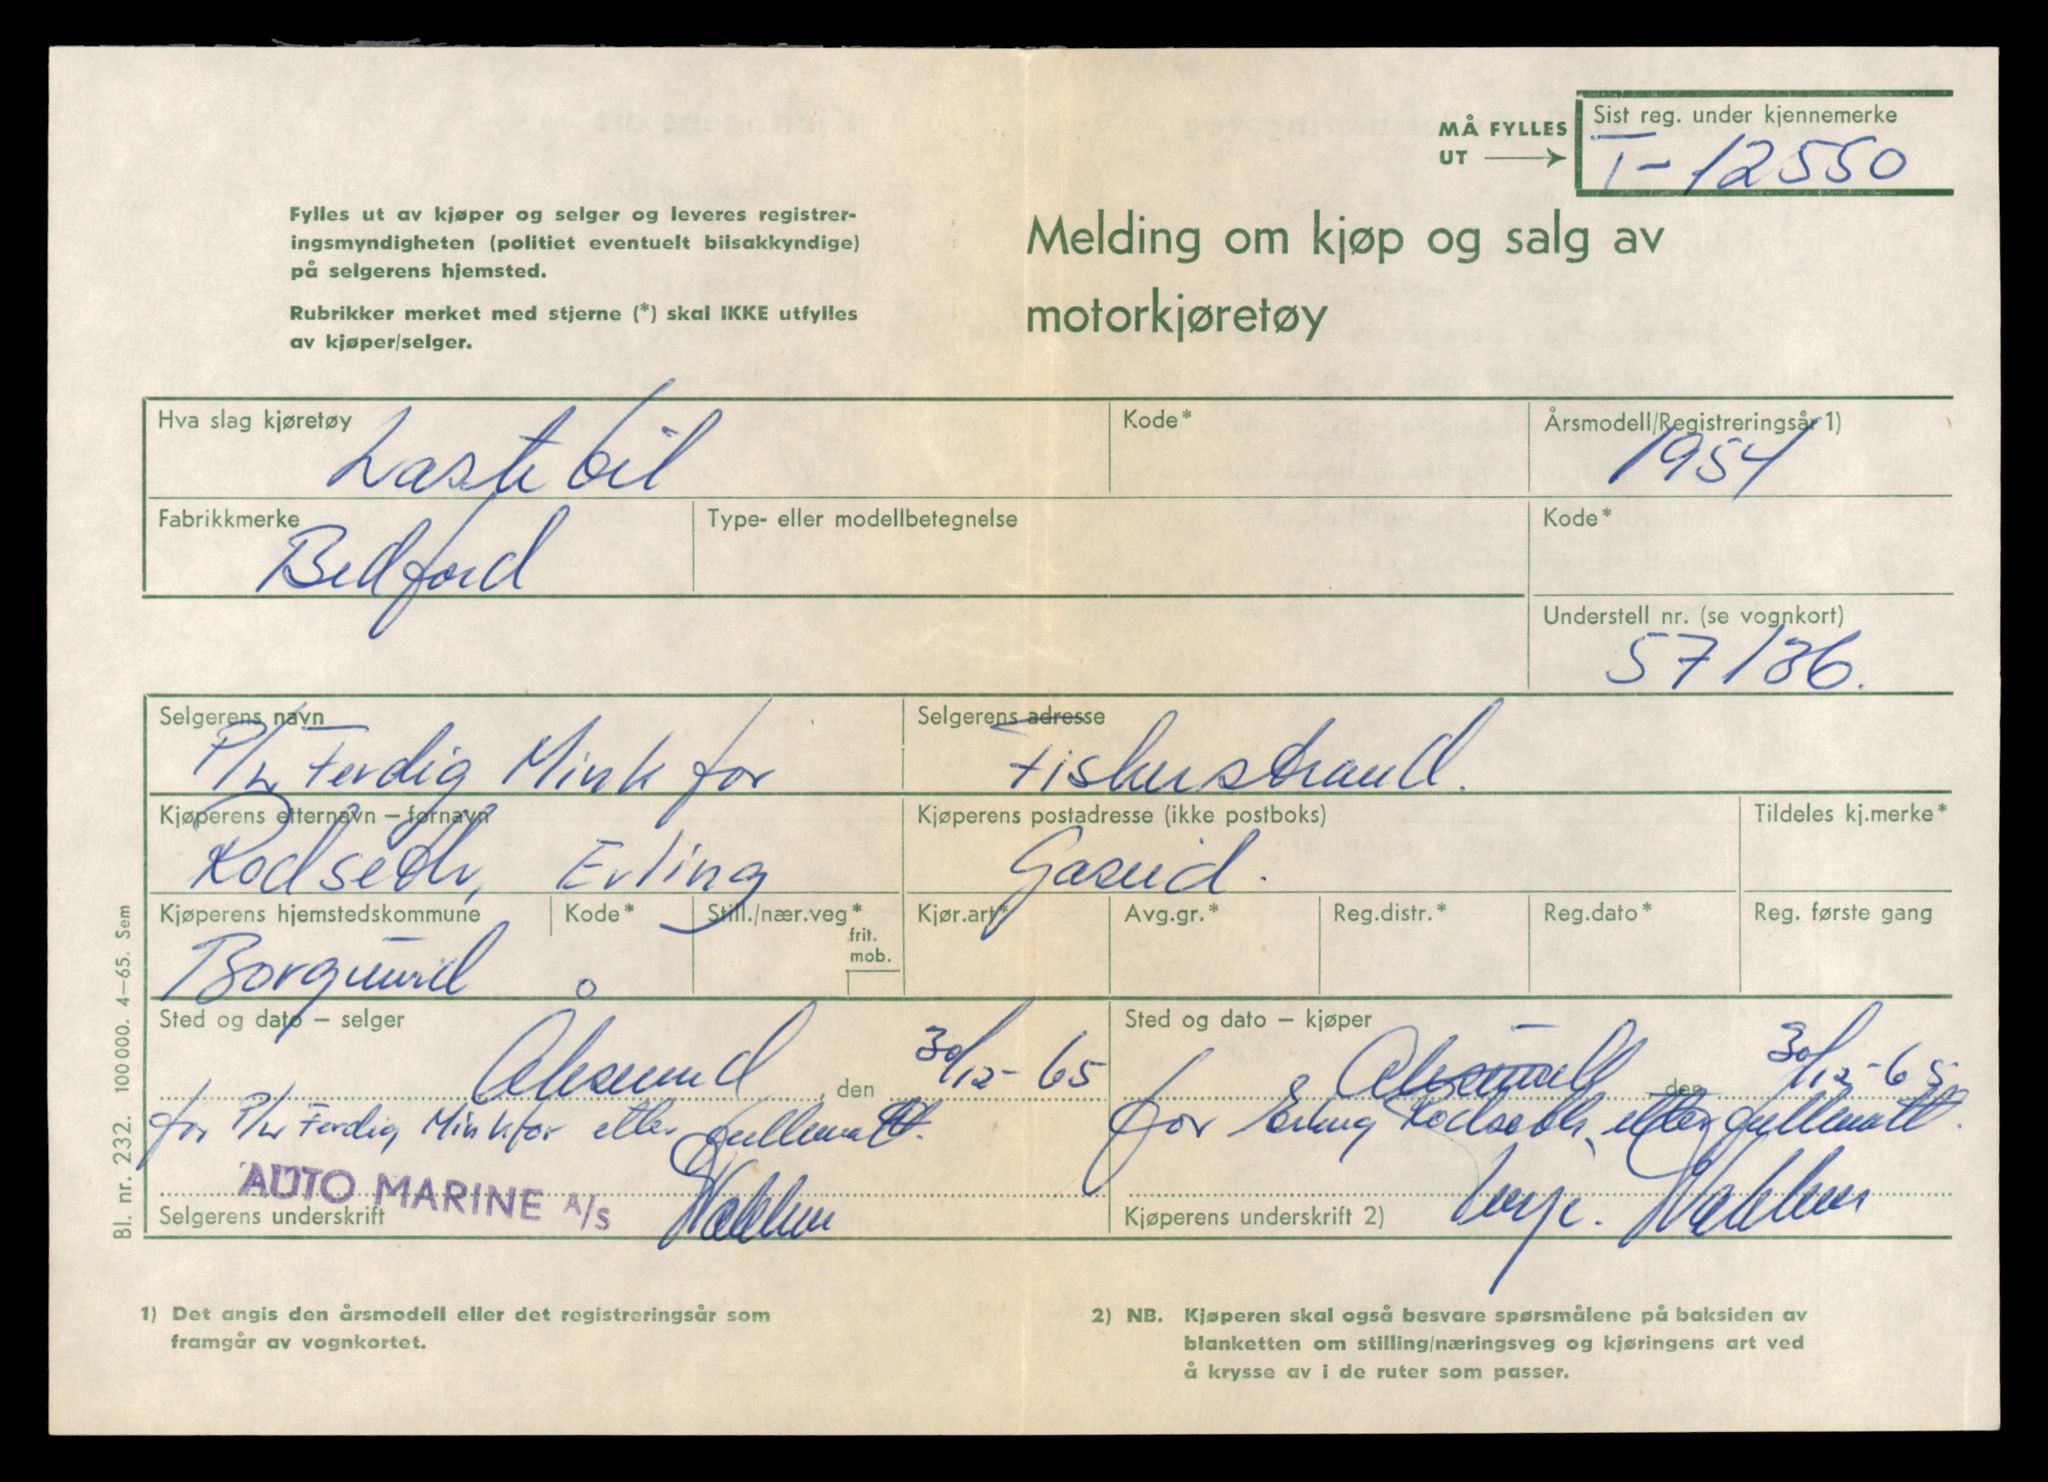 MÅ FYLLES
UT
Sist reg. under kjennemerke
T-12550
Fylles ut av kjøper og selger og leveres registrer-
ingsmyndigheten (politiet eventuelt bilsakkyndige)
på selgerens hjemsted.
Rubrikker merket med stjerne (*) skal IKKE utfylles
av kjøper/selger.
Melding om kjøp og salg av
motorkjøretøy
Hva slag kjøretøy
Lastebil
Kode*
Årsmodell/Registreringsår 1)
1954
Fabrikkmerke
Bedford
Type- eller modellbetegnelse
Kode*
Understell nr. (se vognkort)
57136.
Selgerens navn
P/L Ferdig Minkfor
Selgerens adresse
Fiskerstrand.
Kjøperens etternavn – fornavn
Rødseth, Erling
Kjøperens postadresse (ikke postboks)
Gåseid.
Tildeles kj.merke*
Kjøperens hjemstedskommune
Borgund
Kode*
Still./nær.veg*
frit.
mob.
Kjør.art*
Avg.gr.*
Reg.distr.*
Reg.dato*
Reg. første gang
Sted og dato – selger
Ålesund, den 30/12-65
for P/L Ferdig Minkfor etter fullmakt.
AUTO MARINE A/S
Selgerens underskrift
Sted og dato – kjøper
Ålesund den 30/12-65
for Erling Rødseth, etter fullmakt.
Kjøperens underskrift 2)
1) Det angis den årsmodell eller det registreringsår som
framgår av vognkortet.
2) NB. Kjøperen skal også besvare spørsmålene på baksiden av
blanketten om stilling/næringsveg og kjøringens art ved
å krysse av i de ruter som passer.
Bl. nr. 232. 100 000. 4–65. Sem